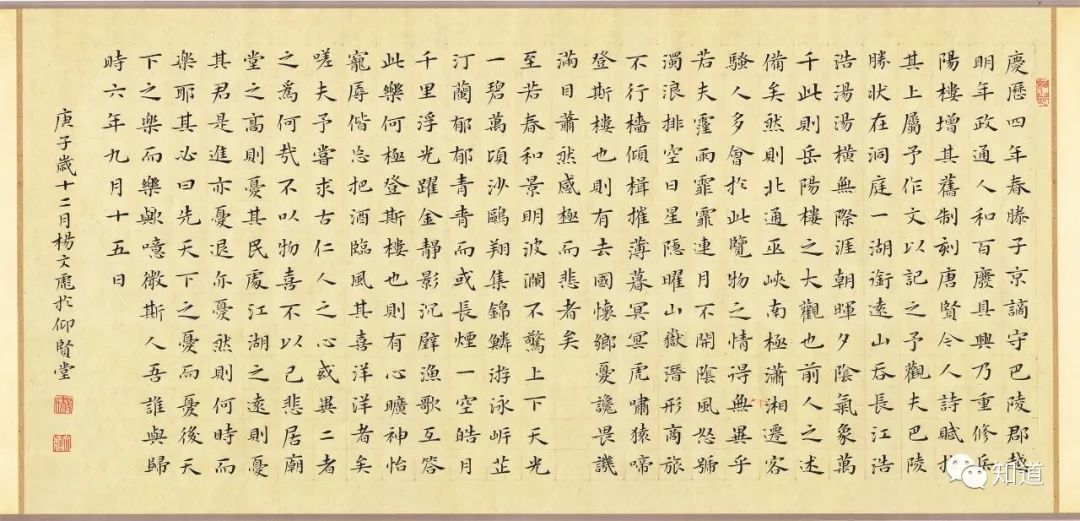 慶歷四年春滕子京謫守巴陵郡越
明年政通人和百廢具興乃重修岳
陽樓增其舊制刻唐賢今人詩賦於
其上屬予作文以記之予觀夫巴陵
勝狀在洞庭一湖銜遠山吞長江浩
浩湯湯橫無際涯朝暉夕陰氣象萬
千此則岳陽樓之大觀也前人之述
備矣然則北通巫峽南極瀟湘遷客
騷人多會於此覽物之情得無異乎
若夫霪雨霏霏連月不開陰風怒號
濁浪排空日星隱曜山嶽潛形商旅
不行檣傾楫摧薄暮冥冥虎嘯猿啼
登斯樓也則有去國懷鄉憂讒畏譏
滿目蕭然感極而悲者矣
至若春和景明波瀾不驚上下天光
一碧萬頃沙鷗翔集錦鱗游泳岸芷
汀蘭郁郁青青而或長煙一空皓月
千里浮光躍金靜影沉璧漁歌互答
此樂何極登斯樓也則有心曠神怡
寵辱偕忘把酒臨風其喜洋洋者矣
嗟夫予嘗求古仁人之心或異二者
之為何哉不以物喜不以己悲居廟
堂之高則憂其民處江湖之遠則憂
其君是進亦憂退亦憂然則何時而
樂耶其必曰先天下之憂而憂後天
下之樂而樂歟噫微斯人吾誰與歸
時六年九月十五日
庚子歲十二月楊文於仰賢堂
知道